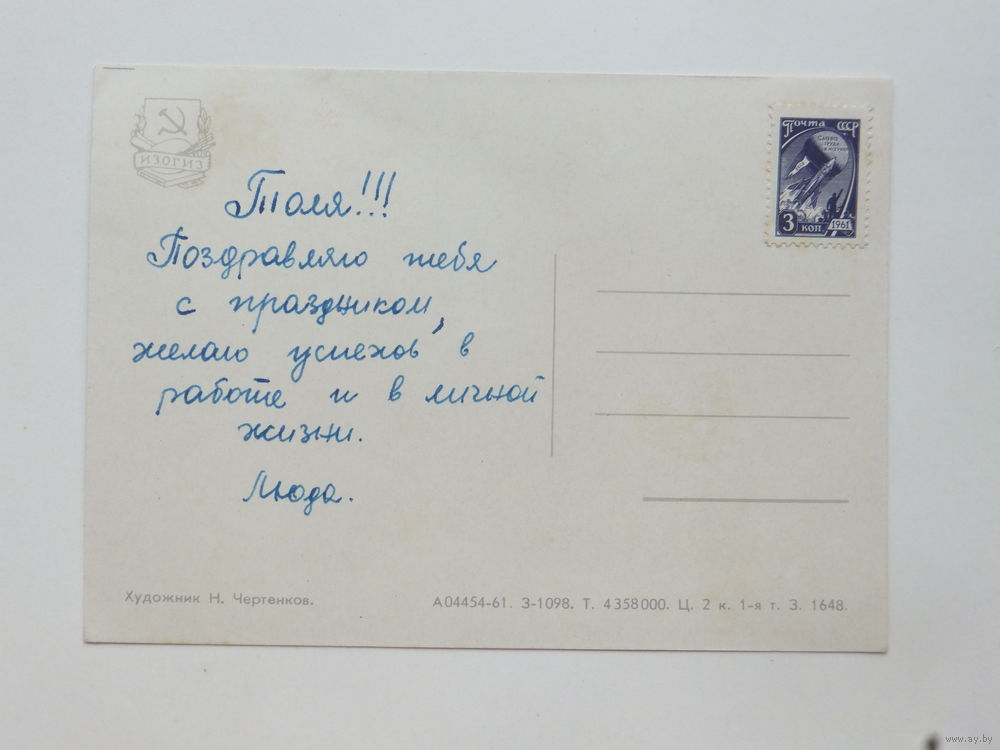 ИЗОГИЗ
Почта СССР
СЛАВА
ТРУДУ
И НАУКЕ!
3 коп
1961
Толя!!!
Поздравляю тебя
с праздником,
желаю успехов в
работе и в личной
жизни.
Люда.
Художник Н. Чертенков.
А04454-61. З-1098. Т. 4358000. Ц. 2 к. 1-я т. З. 1648.
www.ay.by